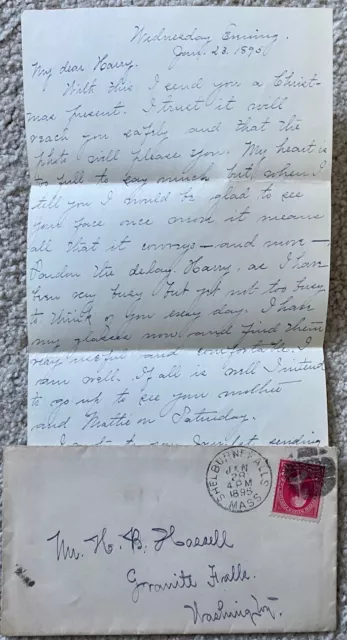 Wednesday Evening.
Jan. 23. 1895.
My dear Harry.
With this I send you a Christ-
mas present. I trust it will
reach you safely and that the
photo will please you. My heart is
to full to say much but, when I
tell you I would be glad to see
you face once more it means
all that it conveys — and more —
Pardon the delay Harry, as I have
been very busy but not too busy
to think of you every day. I have
my glasses now and find them
very useful and comfortable. I
am well. If all is well I intend
to go up to see your mother
and Mattie on Saturday.
sending
SHELBURNE FALLS
JAN
4 PM
1895
MASS.
Mr. H. B.
Granite Falls.
Washington.